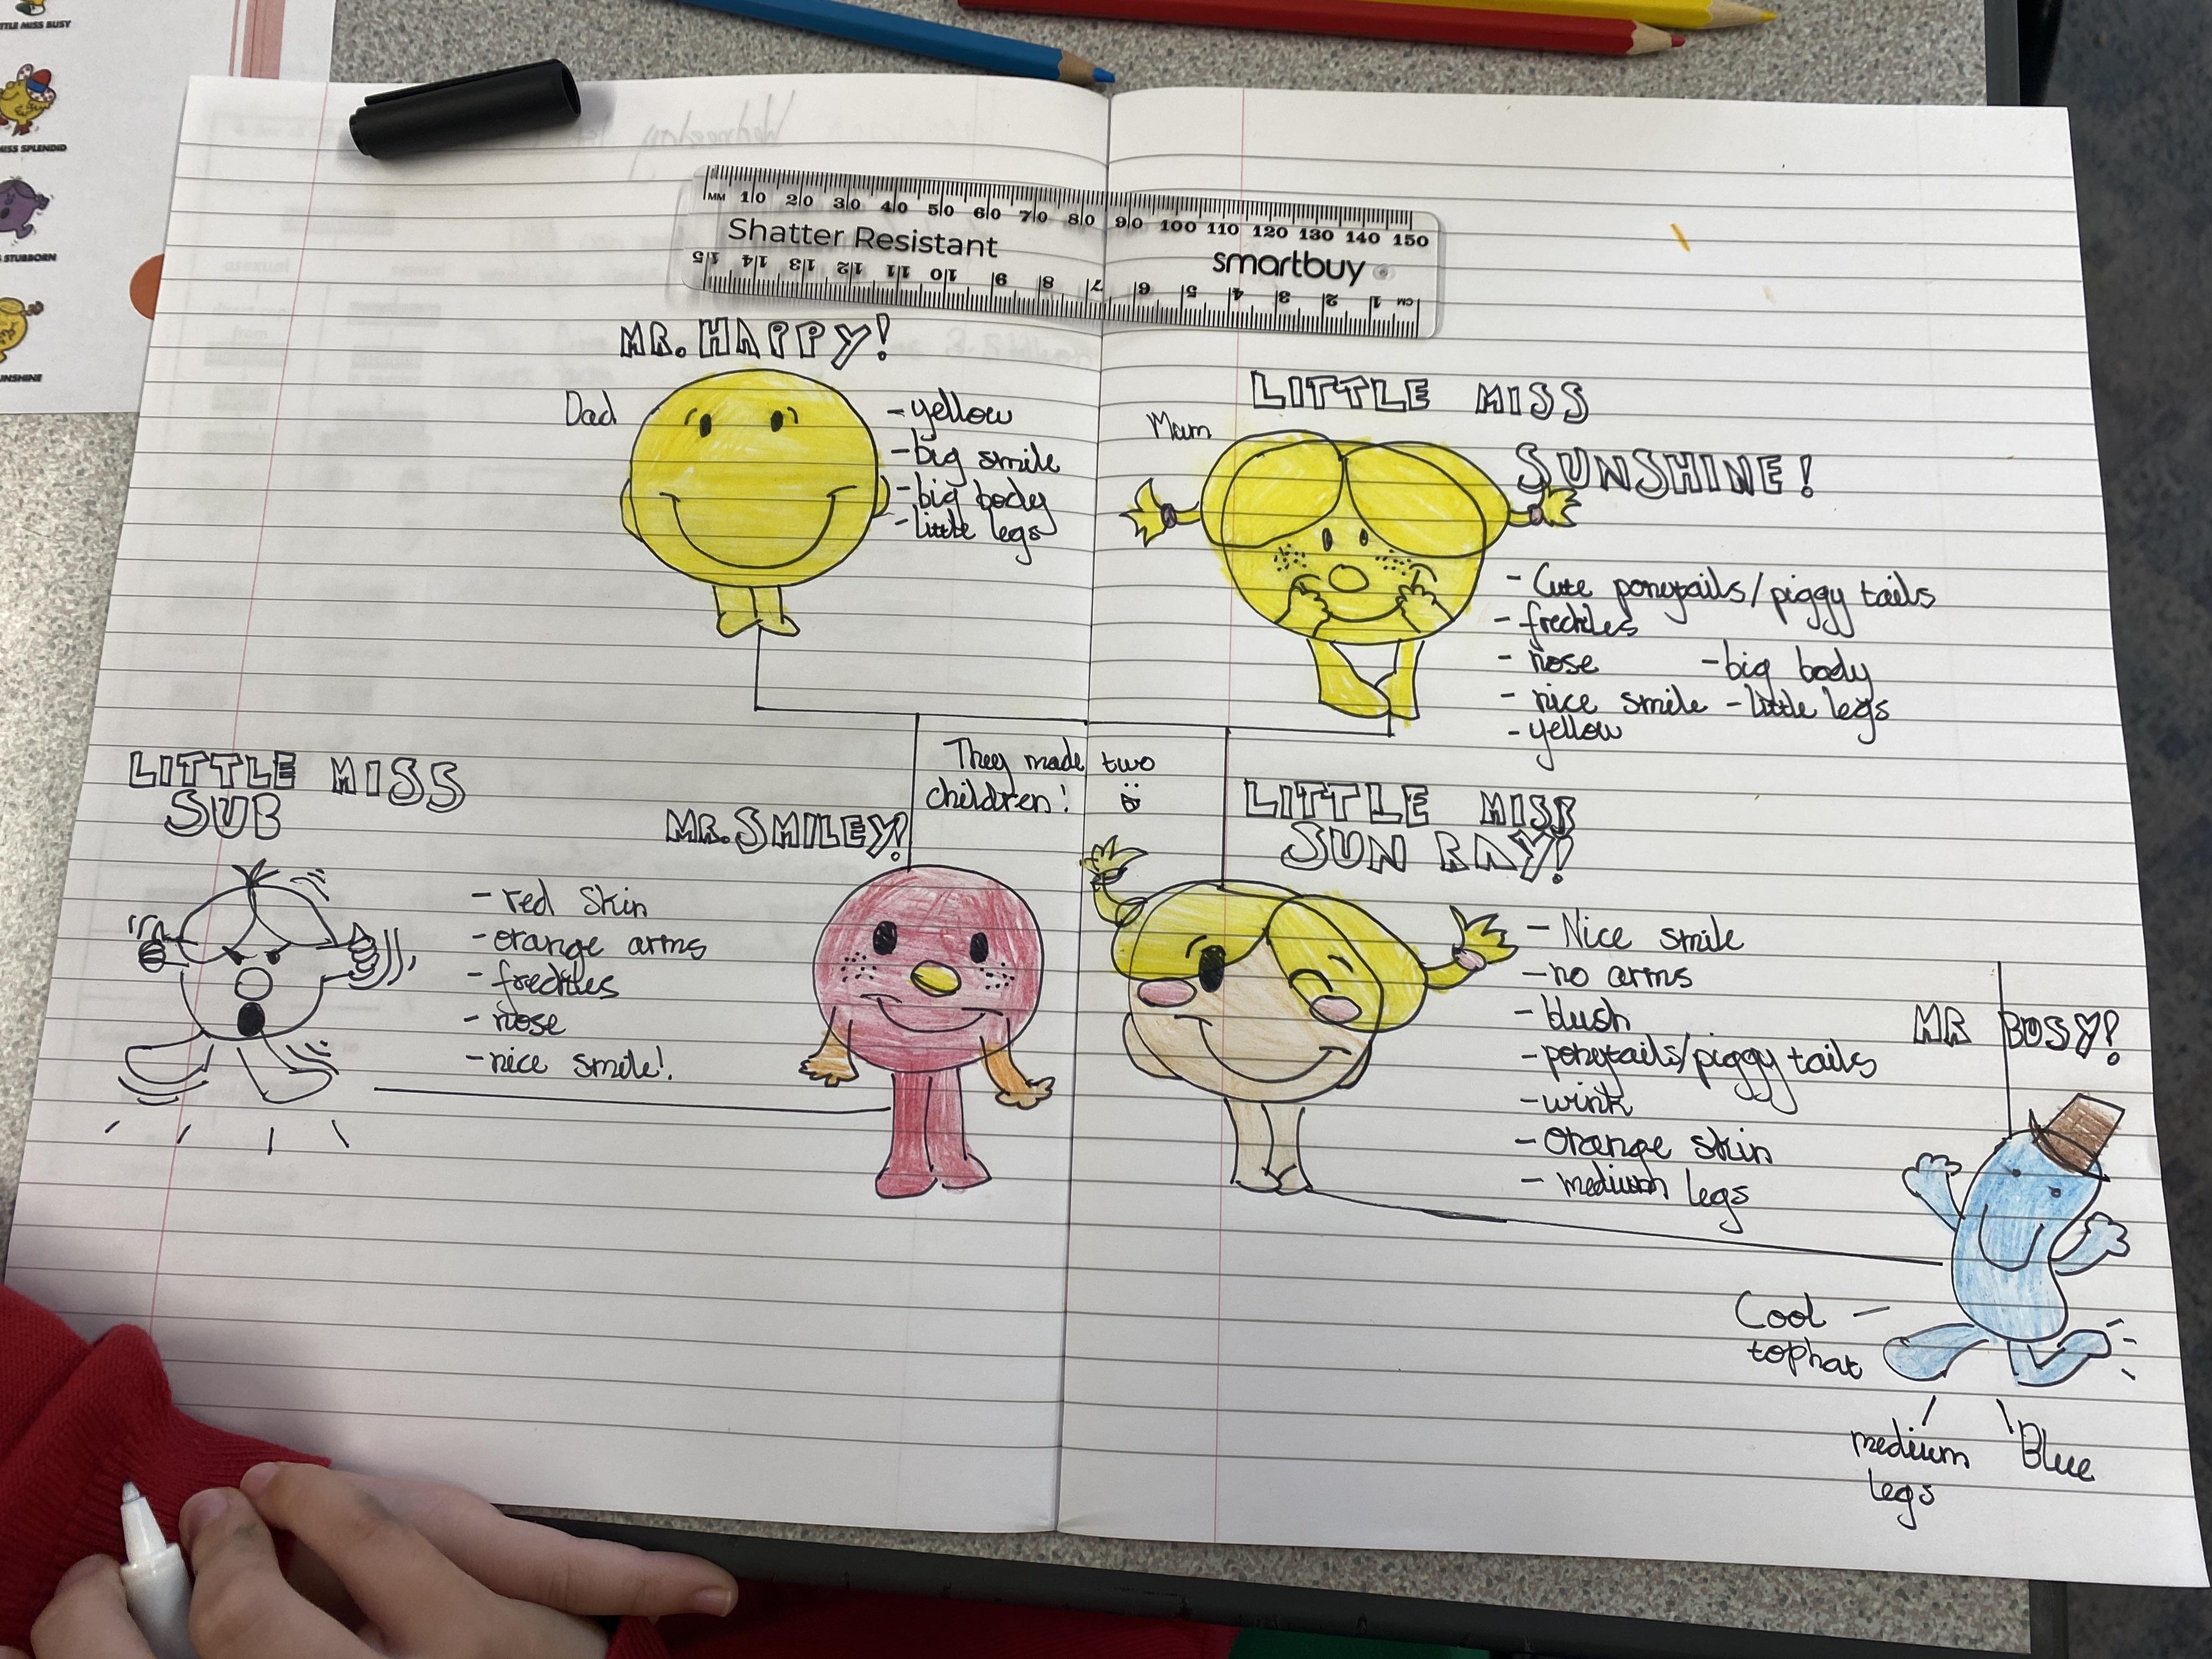 LITTLE MISS BUSY
MISS SPLENDID
STUBBORN
UNSHINE
Wednesday
MM 10 20 30 40 50 60 70 80 90 100 110 120 130 140 150
Shatter Resistant
smartbuy
15 14 13 12 11 10 9 8 7 6 5 4 3 2 1 CM
MR. HAPPY!
Dad
- yellow
- big smile
- big body
- little legs
LITTLE MISS
SUNSHINE!
Mam
- Cute ponytails/piggy tails
- freckles
- nose - big body
- nice smile - little legs
- yellow
They made two
children!
LITTLE MISS
SUB
MR. SMILEY!
- red skin
- orange arms
- freckles
- nose
- nice smile!
LITTLE MISS
SUN RAY!
- Nice smile
- no arms
- blush
- ponytails/piggy tails
- wink
- orange skin
- medium legs
MR BUSY!
Cool
tophat
medium
legs
Blue